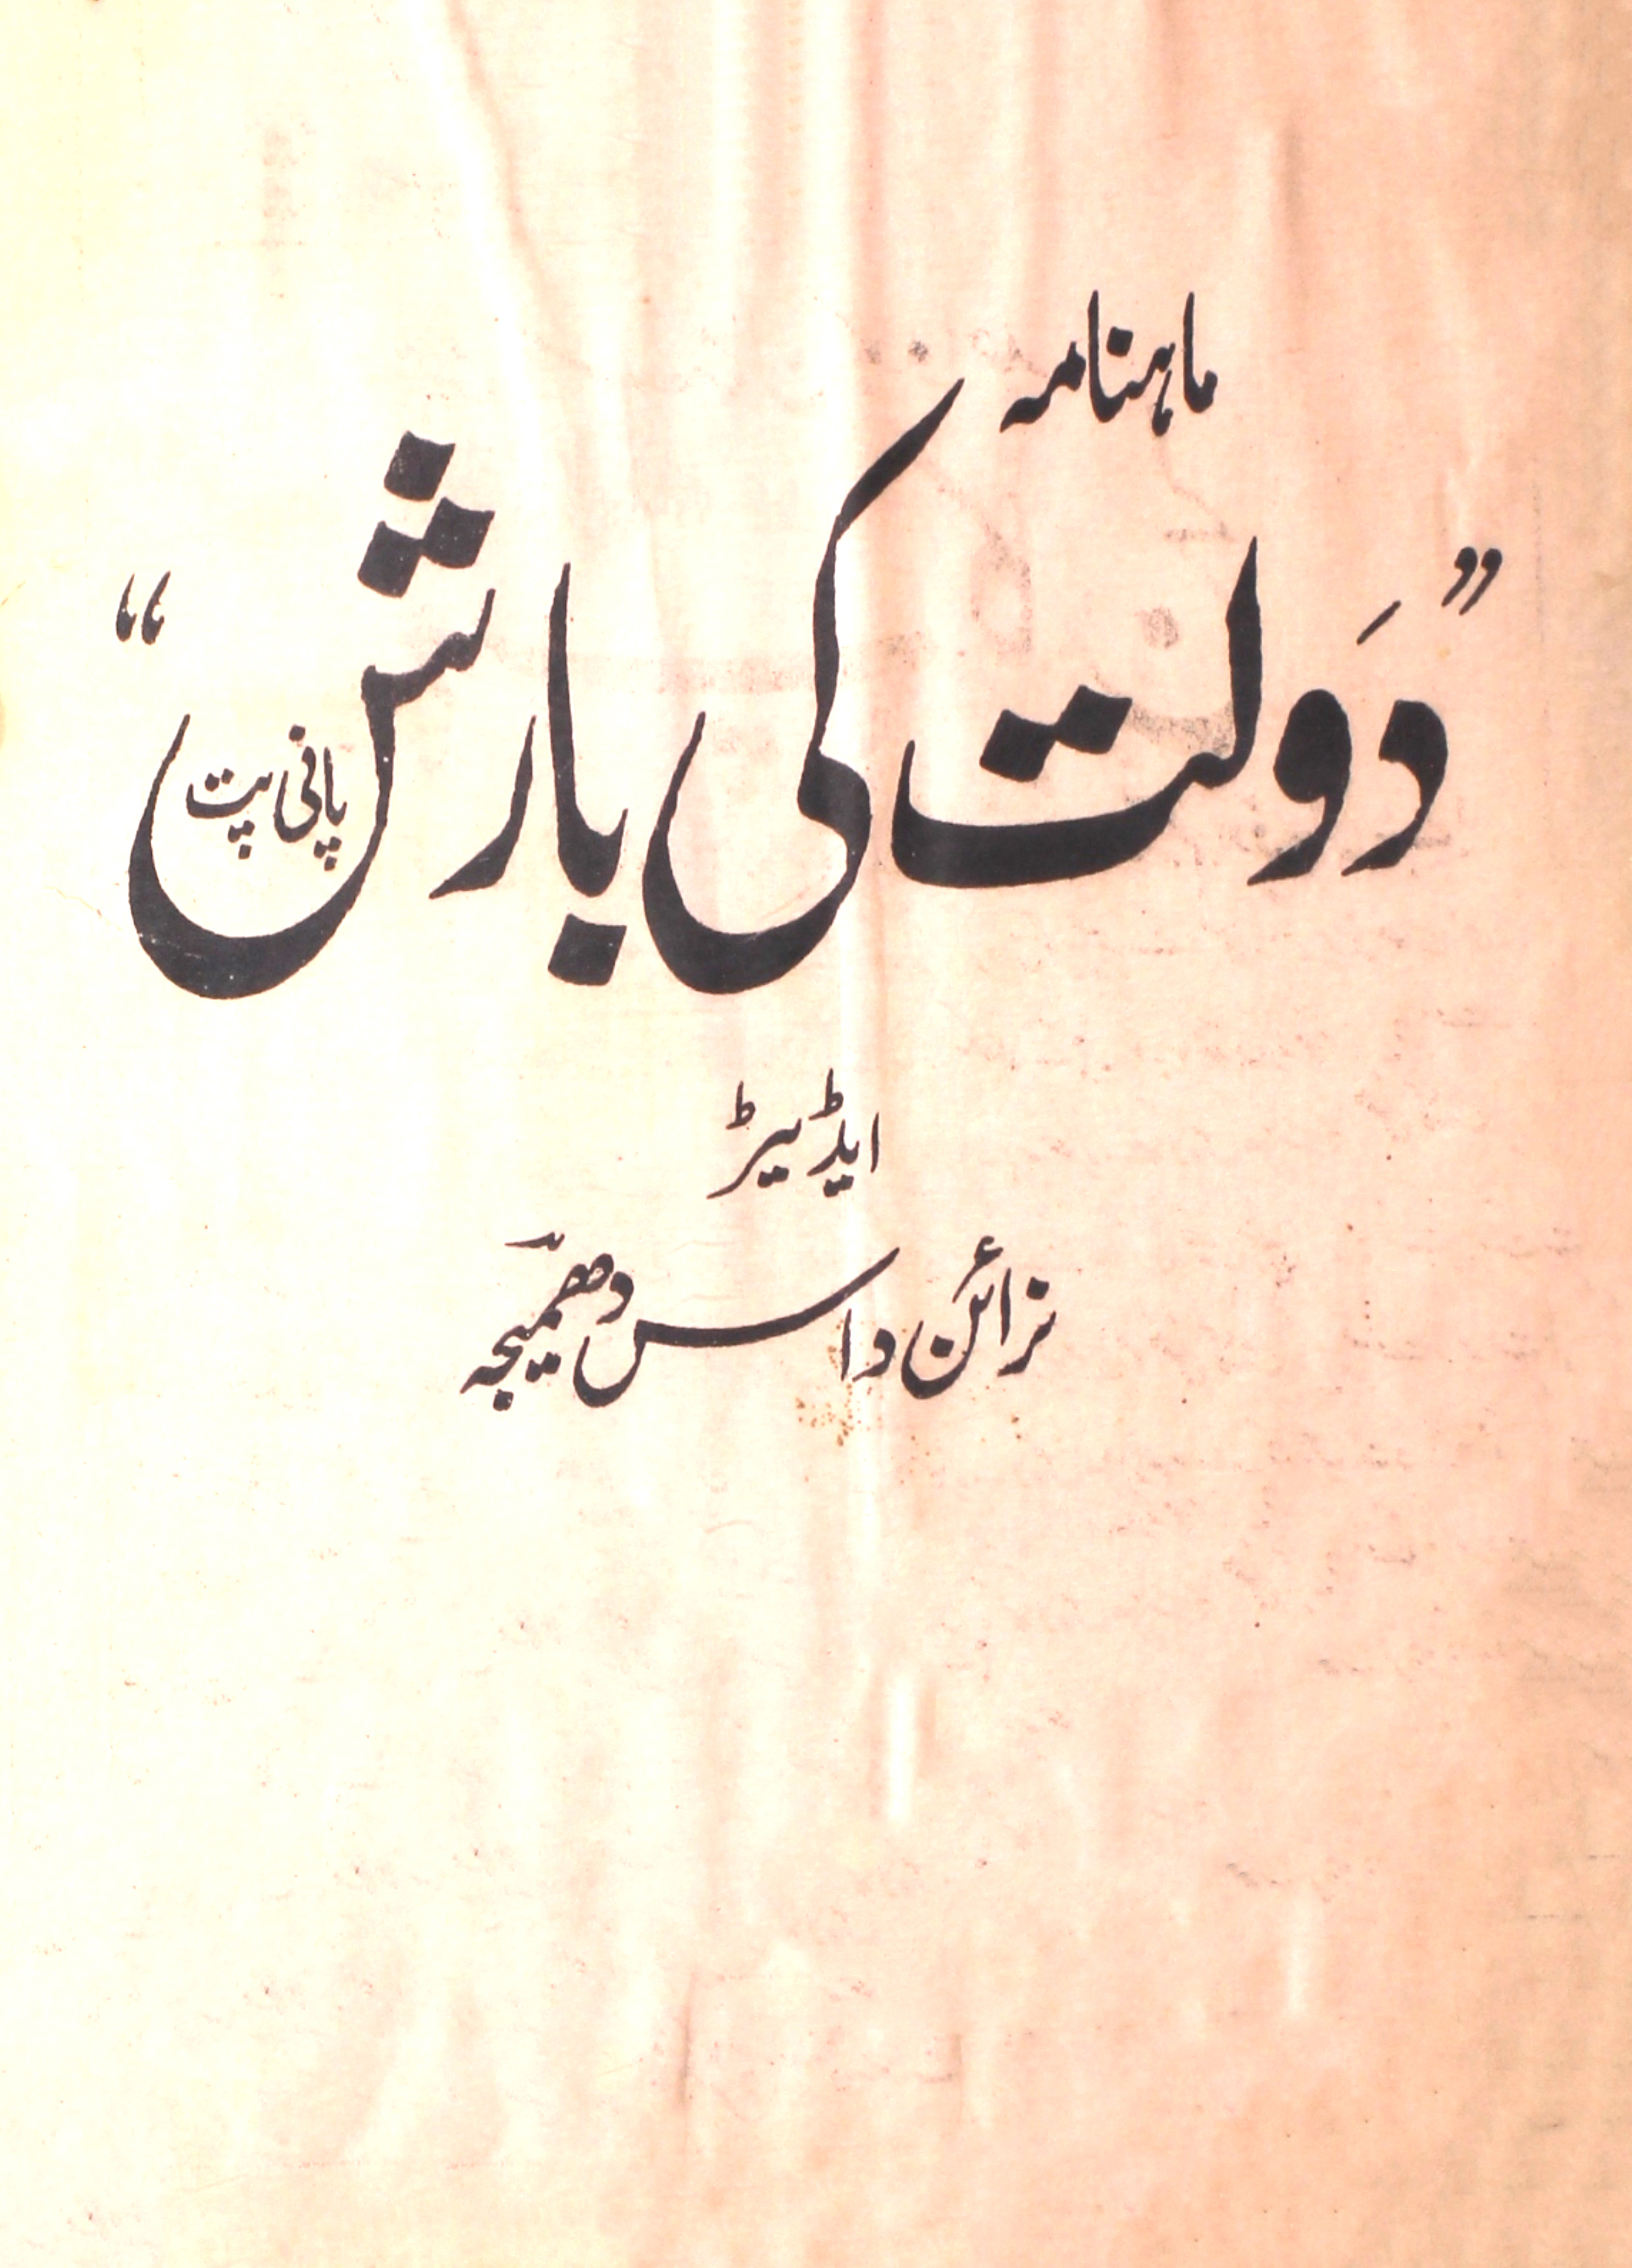 ماہنامہ
”دَولت کی بارش“
پانی پت
ایڈیٹر
نرائن داس دھمّیجہ